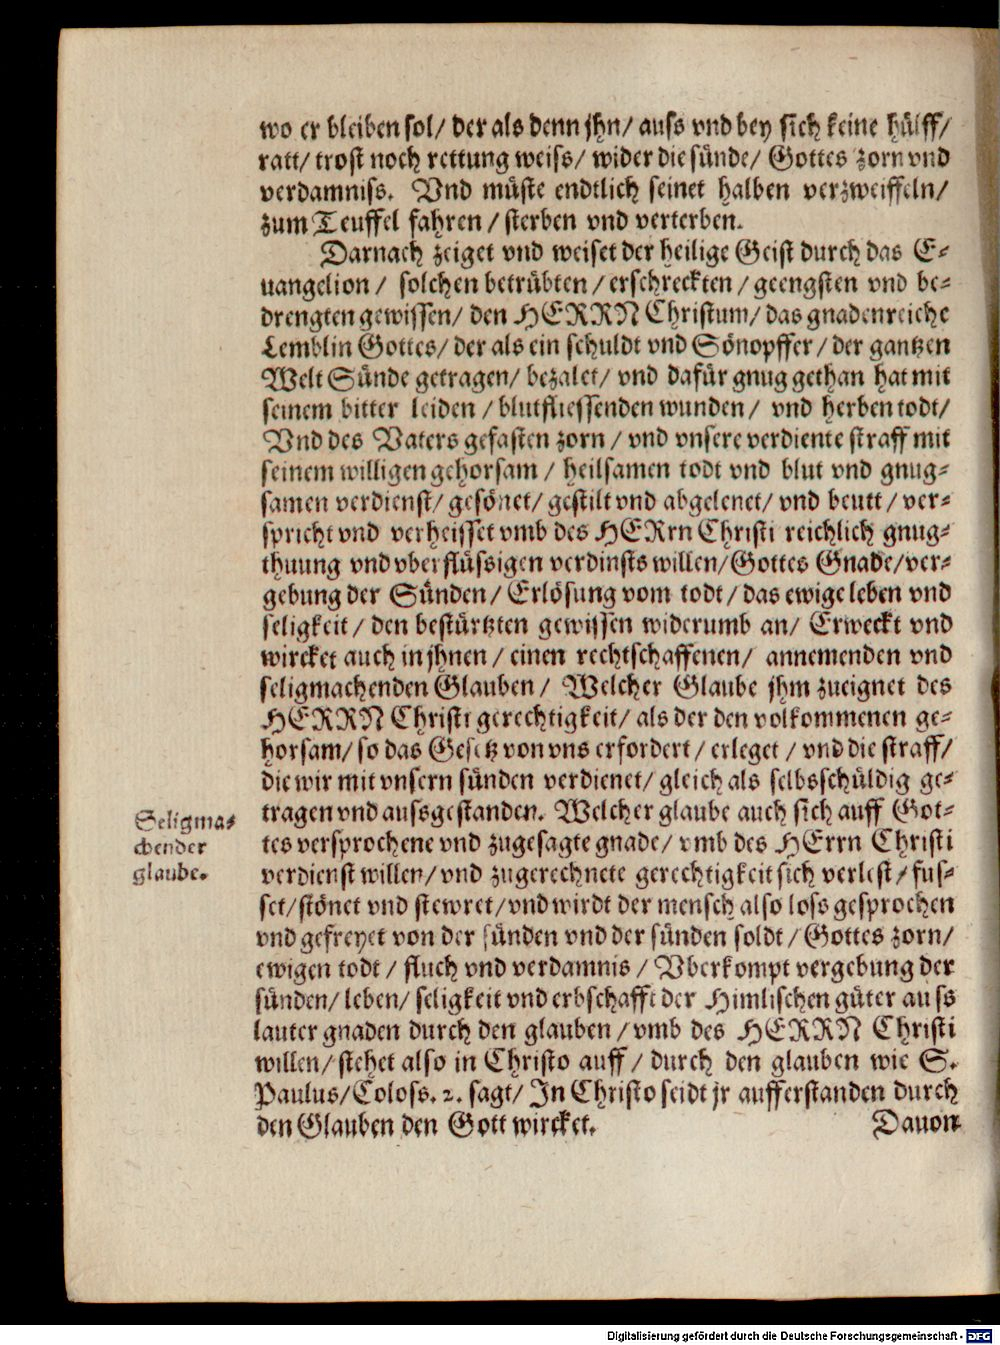 wo er bleiben sol/ der als denn jhn/ auss vnd bey sich keine hülff/
ratt/ trost noch rettung weiss/ wider die sünde/ Gottes zorn vnd
verdamniss. Vnd müste endtlich seinet halben verzweiffeln/
zum Teuffel fahren / sterben vnd verterben.
Darnach zeiget vnd weiset der heilige Geist durch das E-
uangelion / solchen betrübten / erschreckten / geengsten vnd be-
drengten gewissen/ den HERRN Christum/ das gnadenreiche
Lemblin Gottes/ der als ein schuldt vnd Sönopffer / der gantzen
Welt Sünde getragen/ bezalet/ vnd dafür gnug gethan hat mit
seinem bitter leiden / blutfliessenden wunden / vnd herben todt/
Vnd des Vaters gefasten zorn / vnd vnsere verdiente straff mit
seinem willigen gehorsam / heilsamen todt vnd blut vnd gnug-
samen verdienst/ gesönet/ gestilt vnd abgelenet/ vnd beutt / ver-
spricht vnd verheisset vmb des HERrn Christi reichlich gnug-
thuung vnd vberflüssigen verdinsts willen/ Gottes Gnade/ ver-
gebung der Sünden / Erlösung vom todt / das ewige leben vnd
seligkeit / den bestürtzten gewissen widerumb an/ Erweckt vnd
wircket auch in jhnen / einen rechtschaffenen/ annemenden vnd
seligmachenden Glauben / Welcher Glaube jhm zueignet des
HERRN Christi gerechtigkeit/ als der den volkommenen ge-
horsam/ so das Gesetz von vns erfordert / erleget / vnd die straff/
die wir mit vnsern sünden verdienet/ gleich als selbsschüldig ge-
tragen vnd aussgestanden. Welcher glaube auch sich auff Got-
tes versprochene vnd zugesagte gnade/ vmb des HErrn Christi
verdienst willen/ vnd zugerechnete gerechtigkeit sich verlest / fus-
set/ stönet vnd stewret/ vnd wirdt der mensch also loss gesprochen
vnd gefreyet von der sünden vnd der sünden soldt / Gottes zorn/
ewigen todt / fluch vnd verdamnis / Vberkompt vergebung der
sünden/ leben/ seligkeit vnd erbschafft der Himlischen güter auss
lauter gnaden durch den glauben / vmb des HERRN Christi
willen/ stehet also in Christo auff / durch den glauben wie S.
Paulus/ Coloss. 2. sagt/ In Christo seidt jr aufferstanden durch
den Glauben den Gott wircket.
Dauon
Seligma-
chender
glaube.
Digitalisierung gefördert durch die Deutsche Forschungsgemeinschaft - DFG